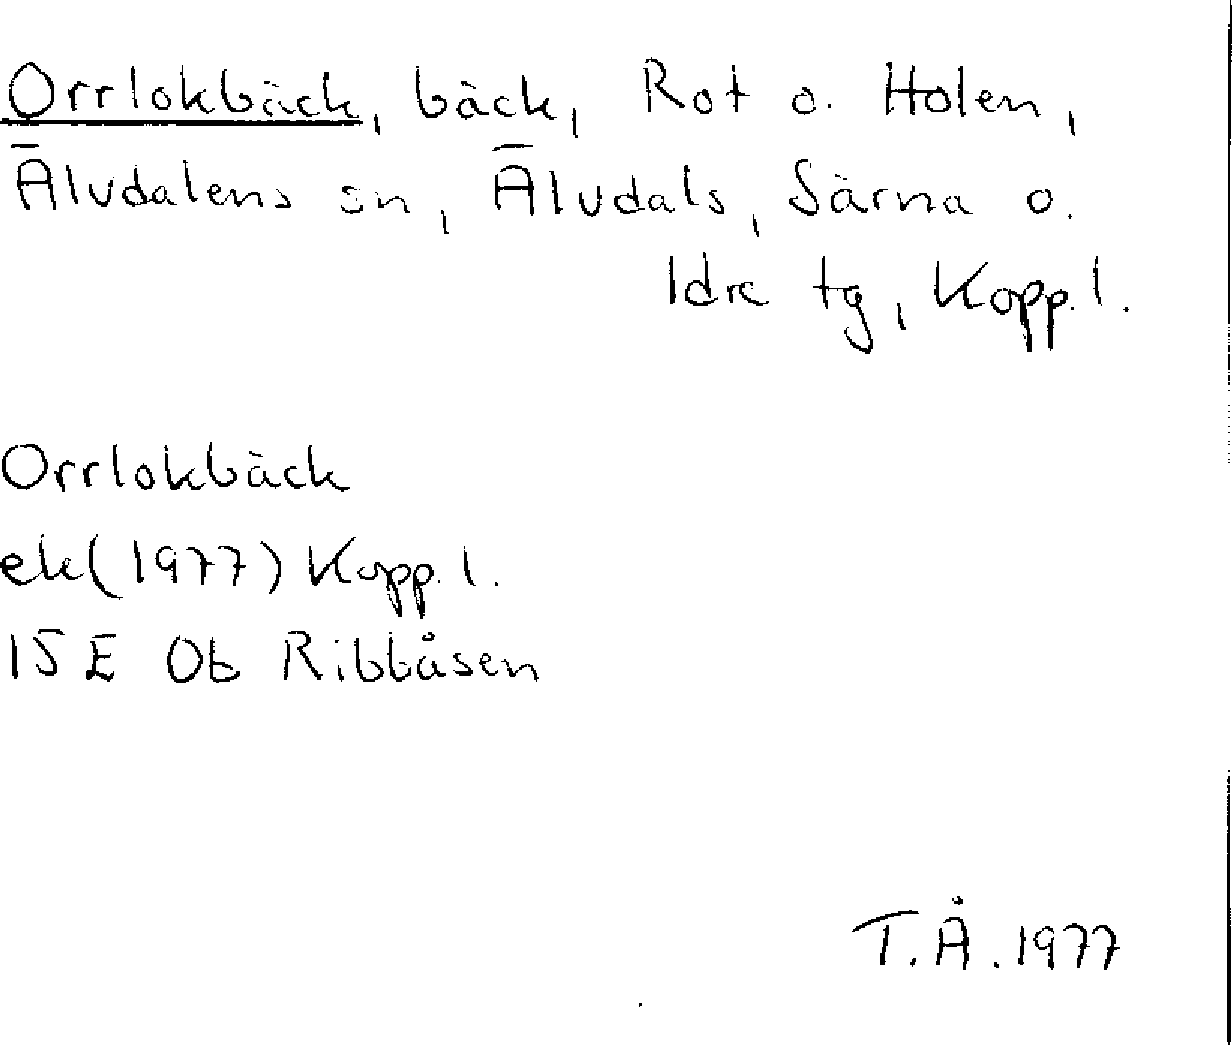 Orrlokbäck, bäck, Rot o. Holen,
Älvdalens sn, Älvdals, Särna o.
Idre tg, Kopp. l.
Orrlokbäck
ek (1977) Kopp. l.
15 E Ob Ribbåsen
T.Å. 1977